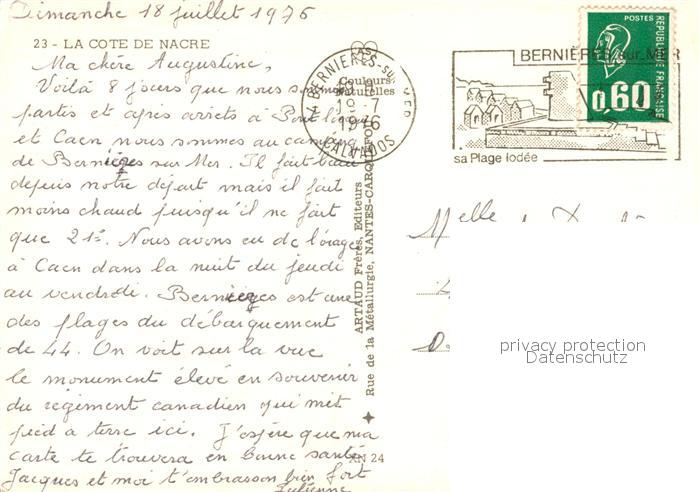 Dimanche 18 juillet 1976
23 - LA COTE DE NACRE
Ma chère Augustine,
Voilà 8 jours que nous sommes
partis et après arrêts à
et Caen nous sommes au camping
de Bernières sur Mer. Il fait beau
depuis notre départ mais il fait
moins chaud puisqu'il ne fait
que 21°. Nous avons eu de l'orage
à Caen dans la nuit du jeudi
au vendredi. Bernières est une
des plages du débarquement
de 44. On voit sur la vue
le monument élevé en souvenir
du régiment canadien qui mit
pied à terre ici. J'espère que ma
carte te trouvera en bonne santé
Jacques et moi t'embrassons bien fort
Julienne
Couleurs
Naturelles
ARTAUD Frères, Editeurs
Rue de la Métallurgie, NANTES-CARQUEFOU
XN 24
BERNIÈRES-sur-MER
19-7
1976
CALVADOS
BERNIÈRES sur MER
sa Plage iodée
POSTES
REPUBLIQUE FRANÇAISE
0,60
Melle
privacy protection
Datenschutz